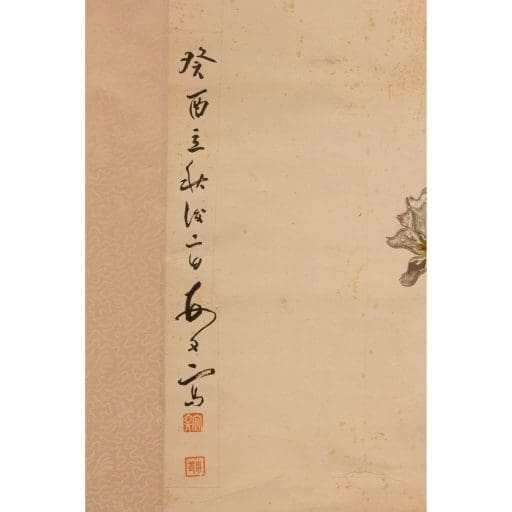 癸酉立秋後二日
寫